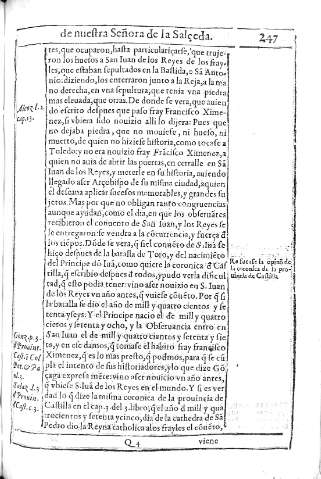 de nuestra Señora de la Salçeda. 247
tes, que ocuparon, hasta particularizarse, que truje-
ron los huesos a San Iuan de los Reyes de los fray-
les, que estaban sepultados en la Bastida, o Sā Anto-
nio: diziendo, los enterraron junto a la Reja, a la ma
no derecha, en vna sepultura, que tenia vna piedra
mas eleuada, que otras. De donde se vera, que auien
do escrito despues que paso fray Francisco Ximenez,
si vbiera sido nouizio alli lo dijera: Pues que
no dejaba piedra, que no mouiese, ni hueso, ni
muerto, de quien no hiziese historia, como tocase a
Toledo: y no era nouizio fray Frācisco Ximenez, a
quien no auia de abrir las puertas, en cerralle en Sā
Iuan de los Reyes, y meterle en su historia, auiendo
llegado a ser Arçobispo de su misma ciudad, a quien
el desea na aplicar sucesos memorables, y grandes su
jetos. Mas por que no obligan tanto congruencias
aunque ayudan, como el dia, en que los obseruātes
recibieron el conuento de San Iuan, y los Reyes se
le entregaron: se vendra a la ocurrencia, y fuerça d
los tiēpos. Dōde se vera, q̄ si el conuēto de S. Iuā se
hiço despues de la batalla de Toro, y del nacimiēto
del Principe dō Iuā, como quiere la coronica d Cas
tilla, q̄ escribio despues d todos, y pudo veria dificul
tad, q̄ esto podia tener: vino a ser nouizio en S. Iuan
de los Reyes vn año antes, q̄ vuiese cōuēto. Por q̄ si
la batalla se dio el año de mill y quatro cientos y se
tenta y seys: Y el Principe nacio el de mill y quatro
cientos y setenta y ocho, y la Obseruancia entro en
San Iuan el de mill y quatro cientos y setenta y sie-
te, y en ese damos, q̄ tomase el habito fray francisco
Ximenez, q̄ es lo mas presto, q̄ podmos, para q̄ se cū
pla el intento de sus historiadores, y lo que dize Gō
çaga expresa mēte: vino a ser nouicio vn año antes,
q̄ vbiese S. Iuā de los Reyes en el mundo. Y si es ver
dad lo q̄ dize la misma coronica de la prouincia de
Castilla en el cap. 3. del 3. libro: q̄ el año d mill y qua
trocientos y setenta y cinco, dia de la cathedra de Sā
Pedro dio la Reyna catholica a los frayles el cōuēto,
Q 4 viene
cap. 13.
la coronica de la pro
uincia de Castilla.